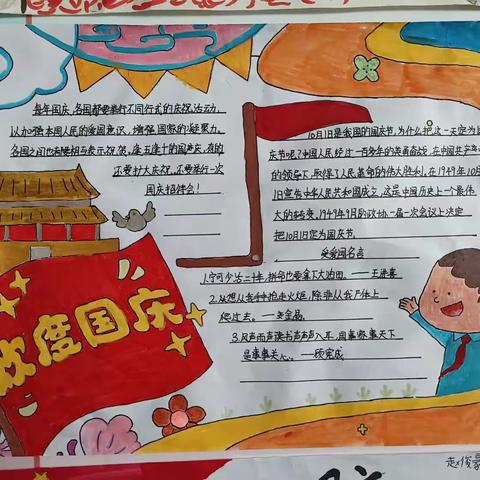 每年国庆,各国都要举行不同行式的庆祝活动,
以加强本国人民的爱国意识,增强国家的凝聚力。
各国之间也都要相互表示祝贺,逢五逢十的国庆,有的
还要扩大庆祝,还要举行一次
国庆招待会!
10月1日是我国的国庆节,为什么把这一天定为国
庆节呢?中国人民经过一百多年的英勇奋战,在中国共产党
的领导下,取得了人民革命的伟大胜利,在1949年10月
1日宣告中华人民共和国成立,这是中国历史上一个最伟
大的转变,1949年9月的政协一届一次会议上决定
把10月1日定为国庆节。
爱国名言
1.宁可少活二十年,拼命也要拿下大油田。——王进喜
2.从想从我
抢走火炬,除非从我尸体上
过去。——金晶
3.风声雨声读书声声入耳,国事家事天下
事事关心。——顾宪成
欢度国庆
赵俊豪